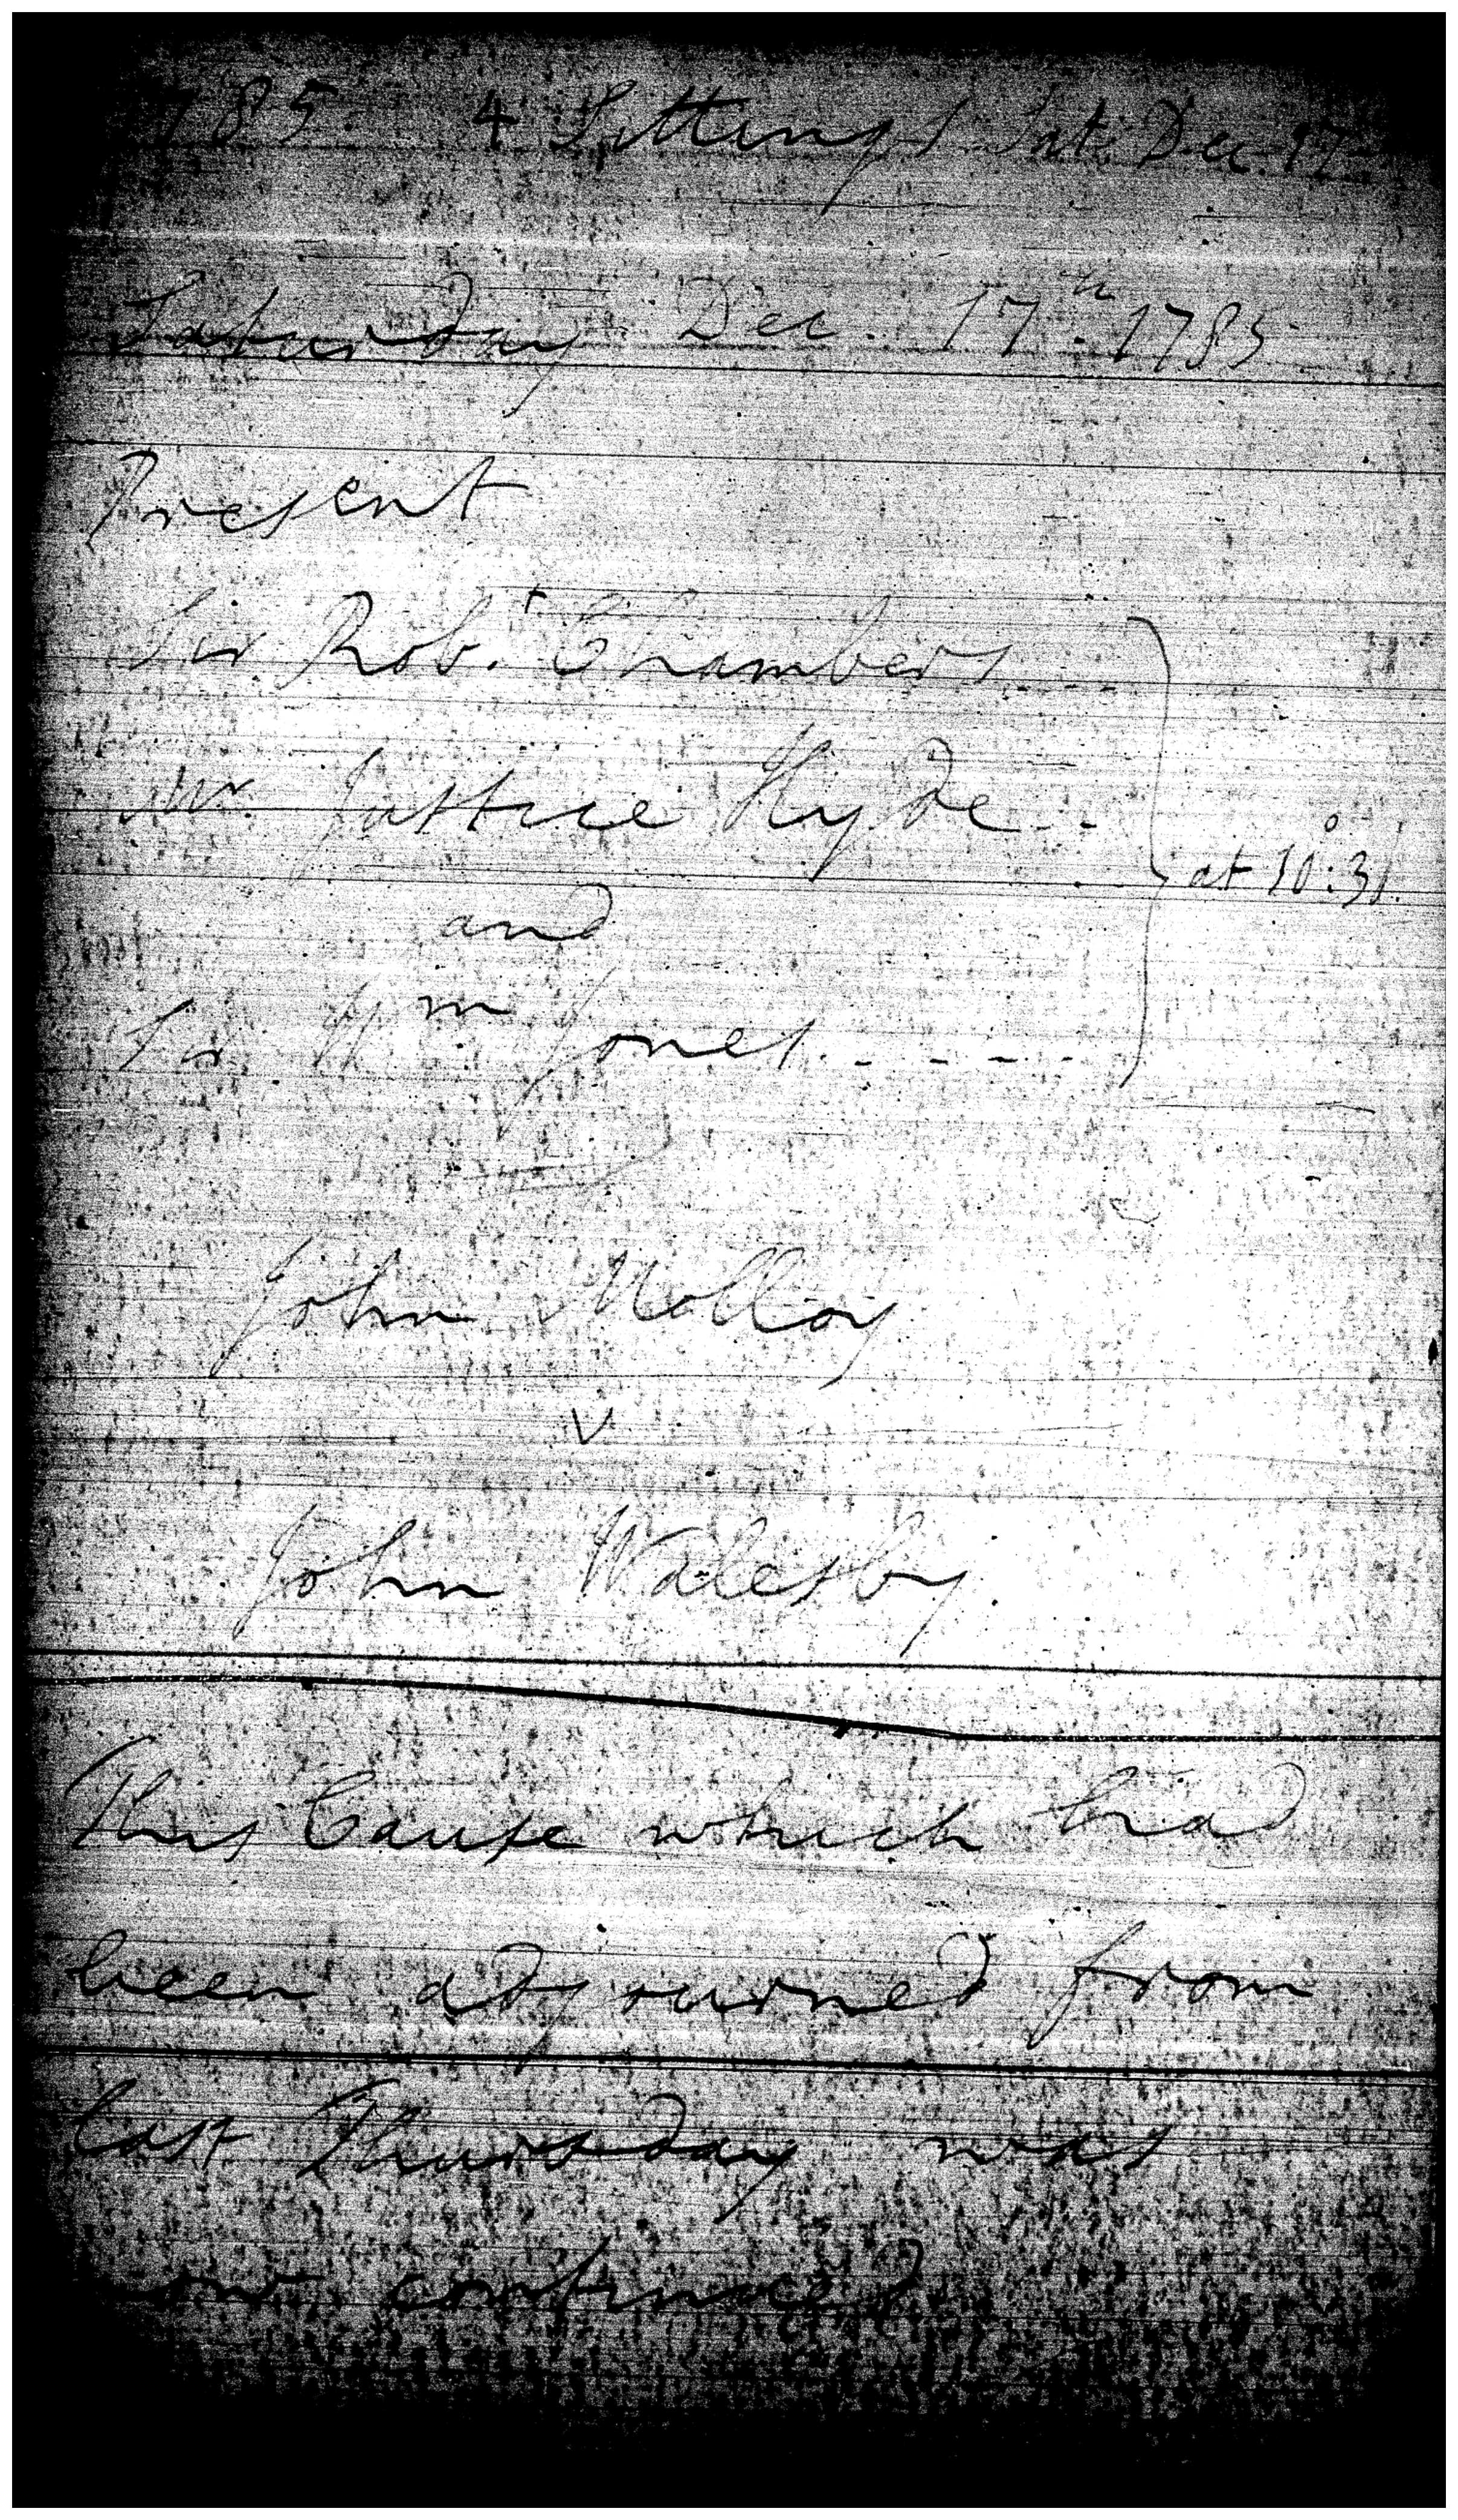 1785. 4 Sittings Sat. Dec. 17
Saturday Dec. 17th. 1785.
Present
Sir Robt. Chambers....
Mr. Justice Hyde...
at 10°:31.
and
Sir Wm Jones.....
John Molloy
v
John Walesby.
This Cause which had
been adjourned from
last Thursday was
now continued